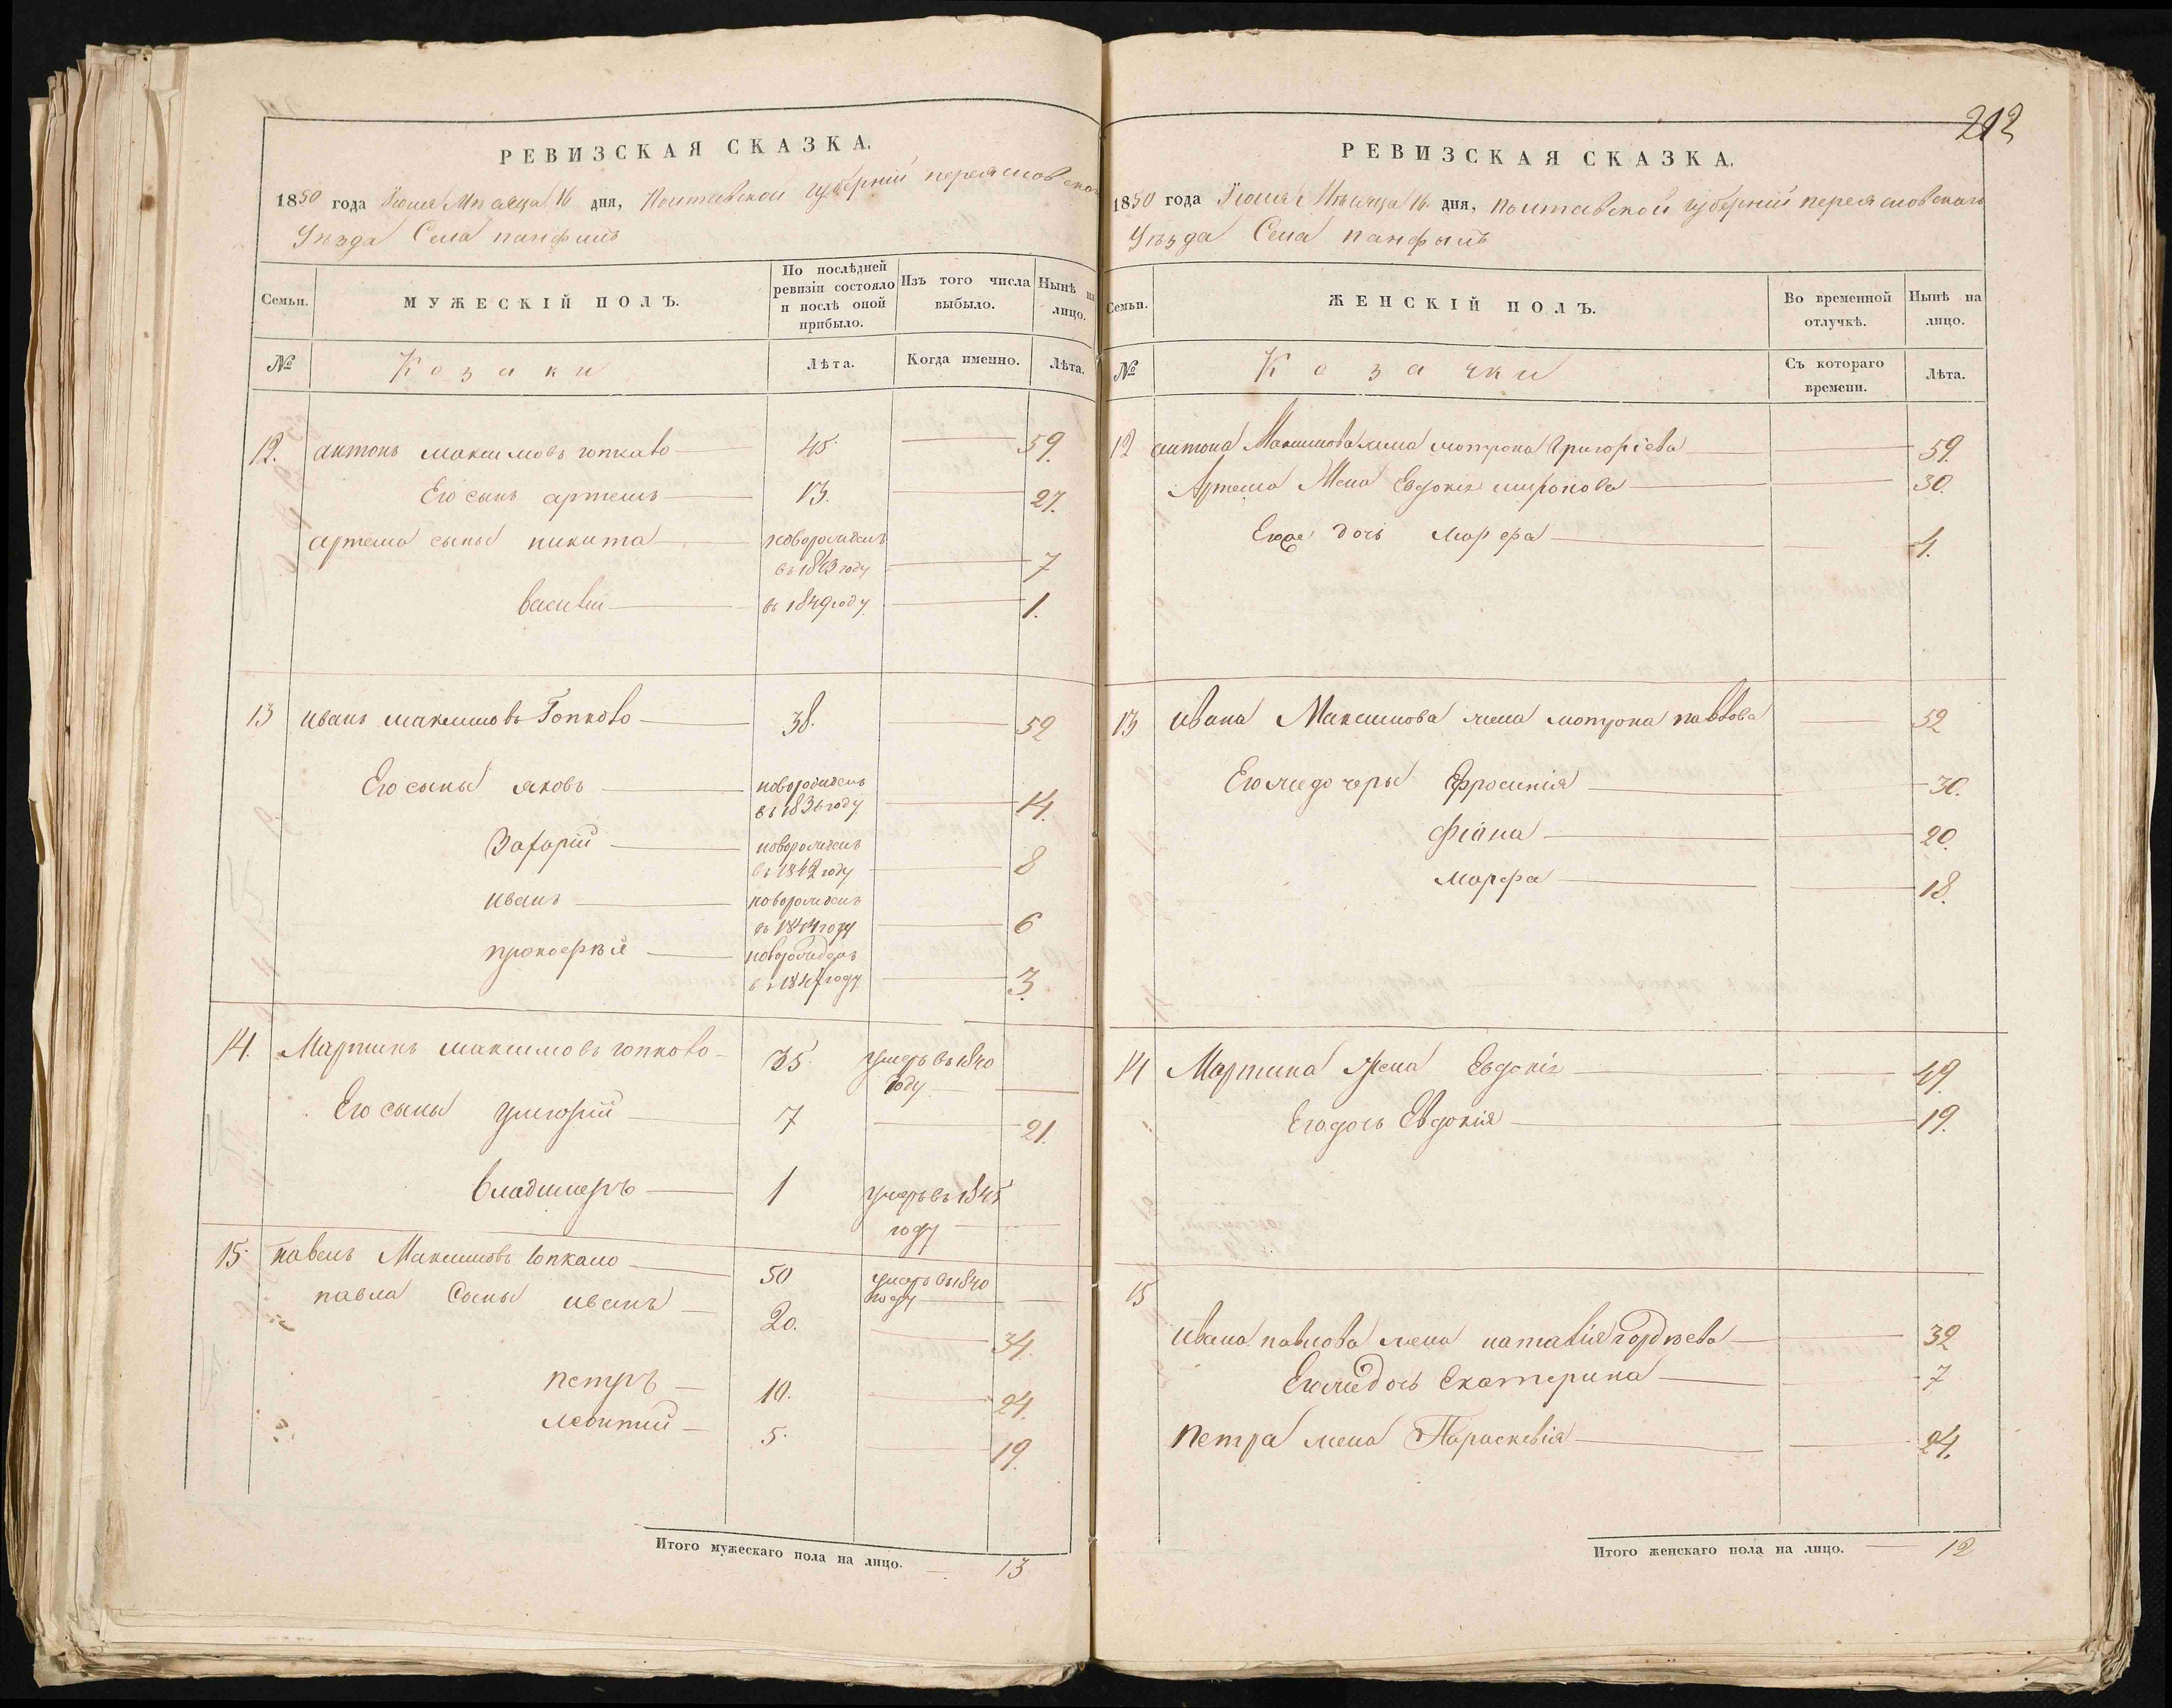 РЕВИЗСКАЯ СКАЗКА.
1850 года Іюня Мѣсяца 16 дня, Полтавской губерніи переясловскаго
Уѣзда Села панфилъ
Семьи.
МУЖЕСКІЙ ПОЛЪ.
По послѣдней ревизіи состояло и послѣ оной прибыло.
Изъ того числа выбыло.
Нынѣ на лицо.
№
Козаки
Лѣта.
Когда именно.
Лѣта.
12. антонъ максимовъ гопкало 45 59.
Его сынъ артемъ 13. 27.
артема сыны никита новорожденъ
въ 1843 году 7
василий въ 1849 году 1.
13 иванъ максимовъ Гопкало 38. 52
Его сыны яковъ новорожденъ
въ 1836 году 14.
Захарій новорожденъ
въ 1842 году 8
иванъ новорожденъ
въ 1844 году 6
прокофѣй новорожденъ
въ 1847 году 3.
14. Мартинъ максимовъ гопкало 35 умеръ въ 1840
году
Его сыны григорій 7 21.
Владимеръ 1 умеръ въ 1845
году
15 павелъ Максимовъ гопкало 50 умеръ въ 1840
году
павла Сыны иванъ 20. 34.
петръ 10. 24.
леонтий 5. 19.
Итого мужескаго пола на лицо. 13
212
РЕВИЗСКАЯ СКАЗКА.
1850 года Іюня Мѣсяца 16. дня, полтавской губерніи переясловскаго
Уѣзда Села панфилъ
Семьи.
ЖЕНСКІЙ ПОЛЪ.
Во временной отлучкѣ.
Нынѣ на лицо.
№
Козачки
Съ котораго времени.
Лѣта.
12 антона Максимова жена мотрона Григорієва 59.
Артема Жена Евдокія миронова 30.
Его же дочь марфа 4.
13 ивана Максимова жена мотрона павлова 52
Его же дочеры Ефросинія 30.
Фіяна 20.
марфа 18.
14 Мартина Жена Евдокія 49.
Его дочь Евдокія 19.
15
ивана павлова жена наталія гордѣева 32
Его же дочь Екатерина 7
петра жена Параскевія 24.
Итого женскаго пола на лицо. 12